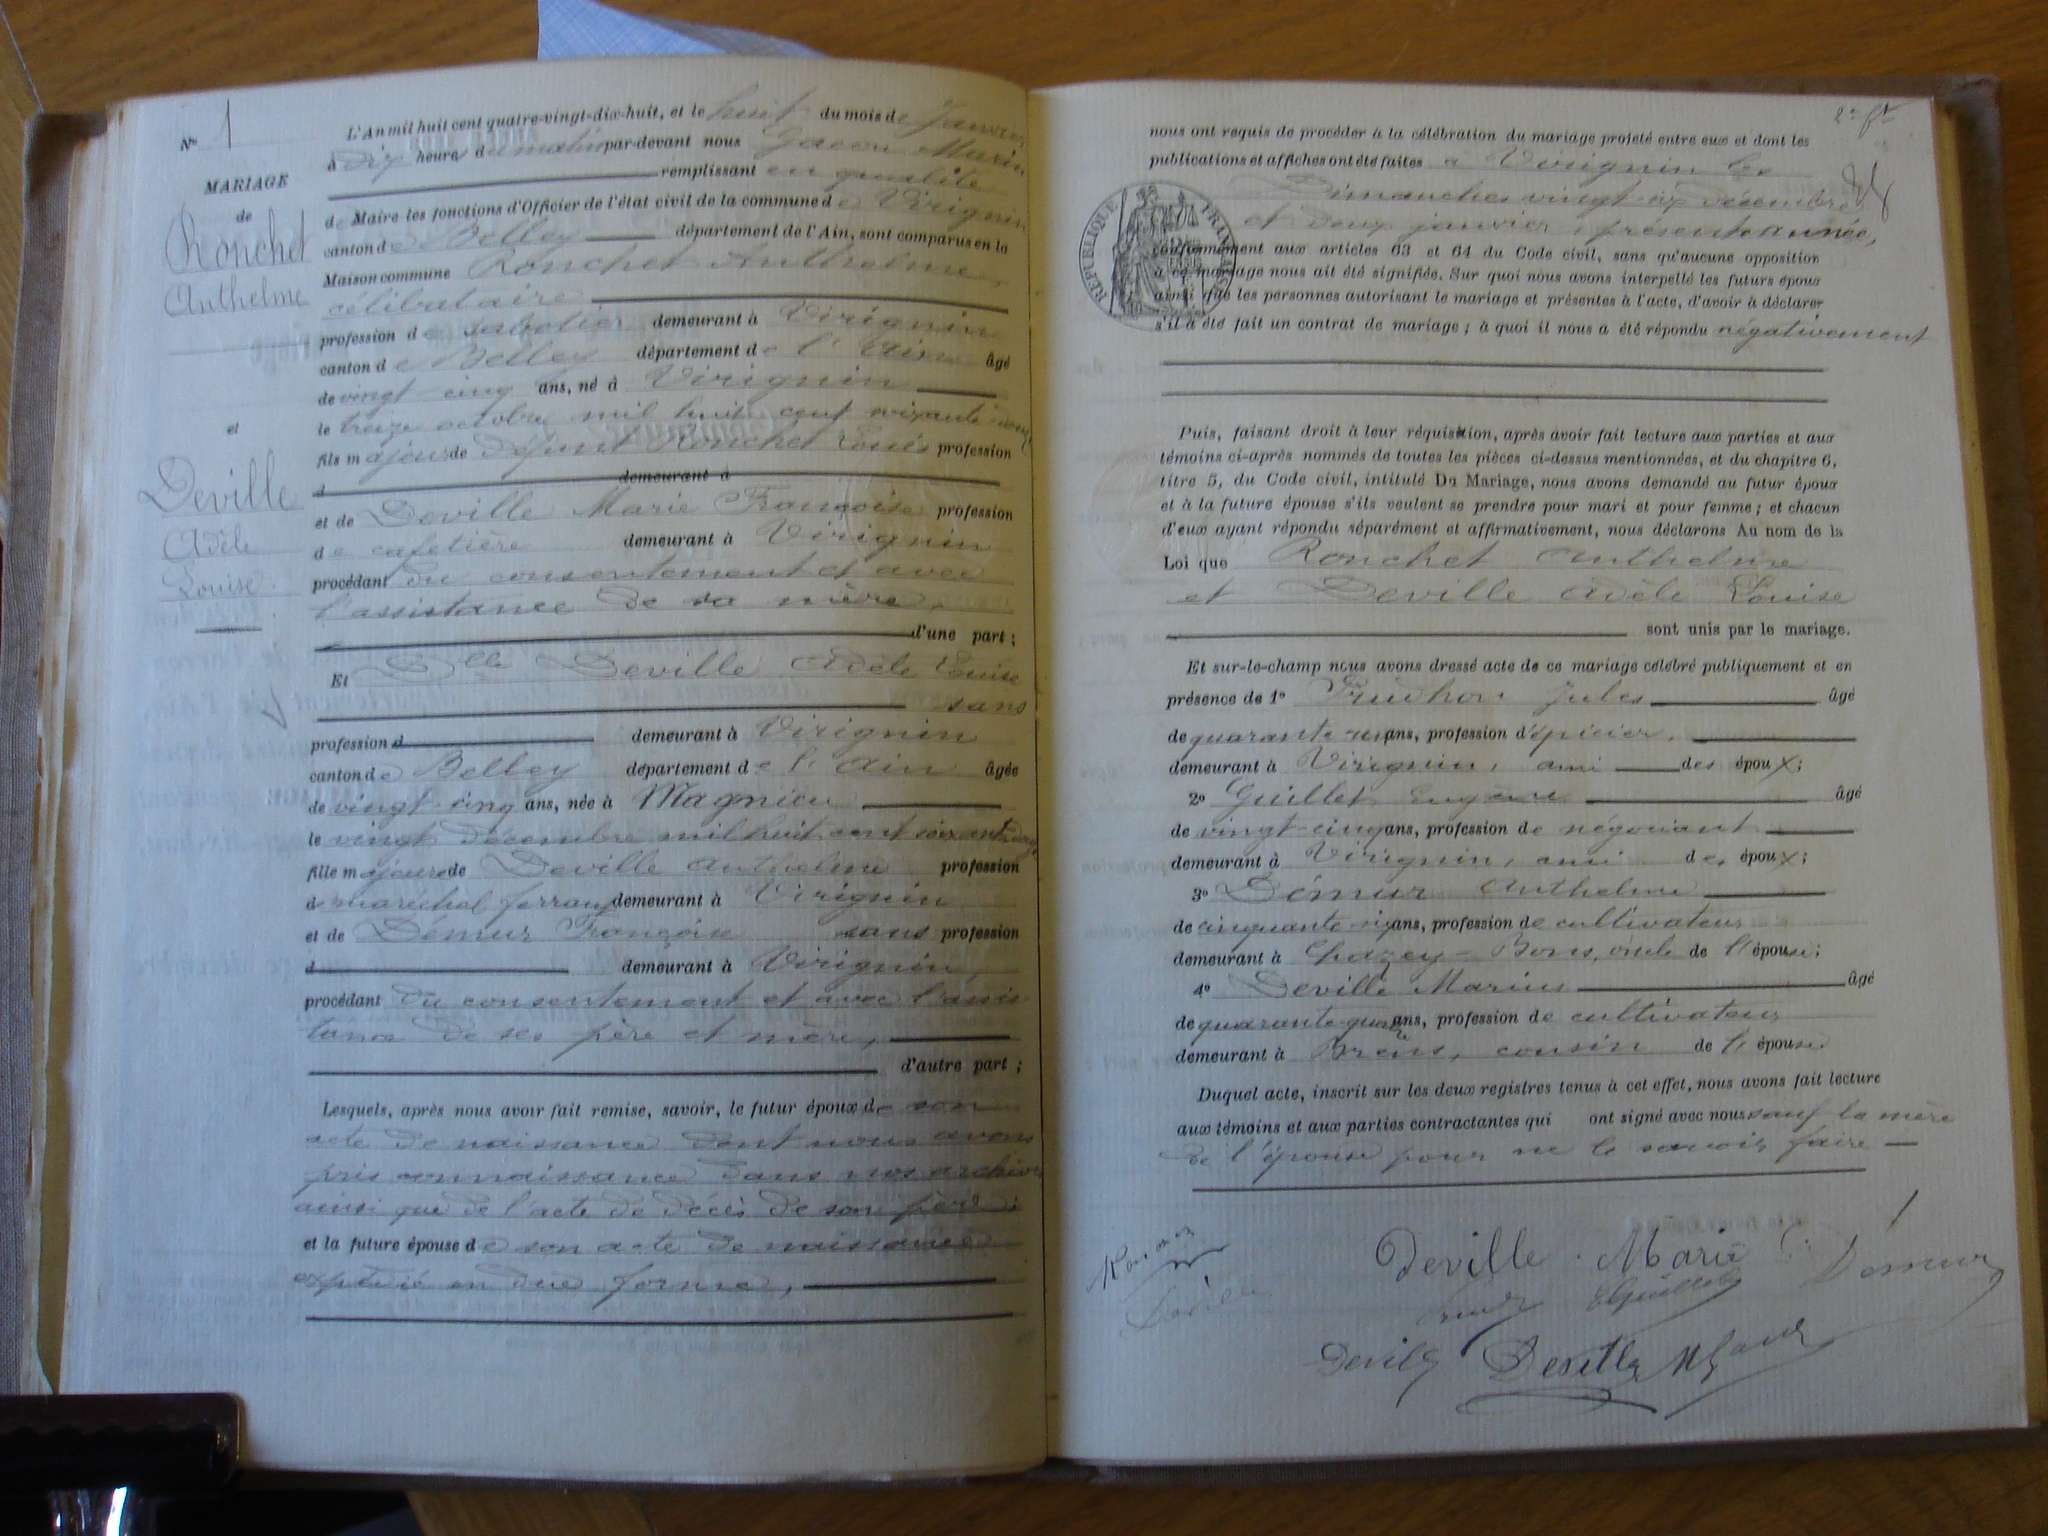 No 1
MARIAGE
de
Ronchet
Anthelme
et
Deville
Adèle
Louise.
L'An mil huit cent quatre-vingt-dix-huit, et le huit du mois de Janvier
à dix heures du matin par-devant nous Gacon Marin
remplissant en qualité
de Maire les fonctions d'Officier de l'état civil de la commune de Virignin
canton de Belley département de l'Ain, sont comparus en la
Maison commune Ronchet Anthelme,
célibataire
profession de sabotier demeurant à Virignin
canton de Belley département de l'Ain âgé
de vingt cinq ans, né à Virignin
le treize octobre mil huit cent soixante-douze
fils majeur de défunt Ronchet Louis profession
d demeurant à
et de Deville Marie Françoise profession
de cafetière demeurant à Virignin
procédant du consentement et avec
l'assistance de sa mère,
d'une part ;
Et Dlle Deville Adèle Louise
sans
profession d demeurant à Virignin
canton de Belley département de l'Ain âgée
de vingt-cinq ans, née à Magnieu
le vingt décembre mil huit cent soixante douze
fille majeure de Deville Anthelme profession
de maréchal ferrant demeurant à Virignin
et de Démur Françoise sans profession
d demeurant à Virignin,
procédant du consentement et avec l'assis
tance de ses père et mère,
d'autre part ;
Lesquels, après nous avoir fait remise, savoir, le futur époux de son
acte de naissance dont nous avons
pris connaissance dans nos archives
ainsi que de l'acte de décès de son père ;
et la future épouse de son acte de naissance
expédié en due forme,
2me ft
nous ont requis de procéder à la célébration du mariage projeté entre eux et dont les
publications et affiches ont été faites à Virignin les
Dimanches vingt-six décembre
et deux janvier, présente année,
RÉPUBLIQUE FRANÇAISE
conformément aux articles 63 et 64 du Code civil, sans qu'aucune opposition
à ce mariage nous ait été signifiée. Sur quoi nous avons interpellé les futurs époux
ainsi que les personnes autorisant le mariage et présentes à l'acte, d'avoir à déclarer
s'il a été fait un contrat de mariage ; à quoi il nous a été répondu négativement
Puis, faisant droit à leur réquisition, après avoir fait lecture aux parties et aux
témoins ci-après nommés de toutes les pièces ci-dessus mentionnées, et du chapitre 6,
titre 5, du Code civil, intitulé Du Mariage, nous avons demandé au futur époux
et à la future épouse s'ils veulent se prendre pour mari et pour femme ; et chacun
d'eux ayant répondu séparément et affirmativement, nous déclarons Au nom de la
Loi que Ronchet Anthelme
et Deville Adèle Louise
sont unis par le mariage.
Et sur-le-champ nous avons dressé acte de ce mariage célébré publiquement et en
présence de 1o Prudhon Jules âgé
de quarante ans, profession d'épicier,
demeurant à Virignin, ami des époux ;
2o Guillet Eugène âgé
de vingt-cinq ans, profession de négociant
demeurant à Virignin, ami des époux ;
3o Démur Anthelme
de cinquante-six ans, profession de cultivateur
demeurant à Chazey-Bons, oncle de l'épouse ;
4o Deville Marius âgé
de quarante-quatre ans, profession de cultivateur
demeurant à Brens, cousin de l'épouse
Duquel acte, inscrit sur les deux registres tenus à cet effet, nous avons fait lecture
aux témoins et aux parties contractantes qui ont signé avec nous sauf la mère
de l'épouse pour ne le savoir faire
Deville Marie Démur
EGuillet
Deville Deville